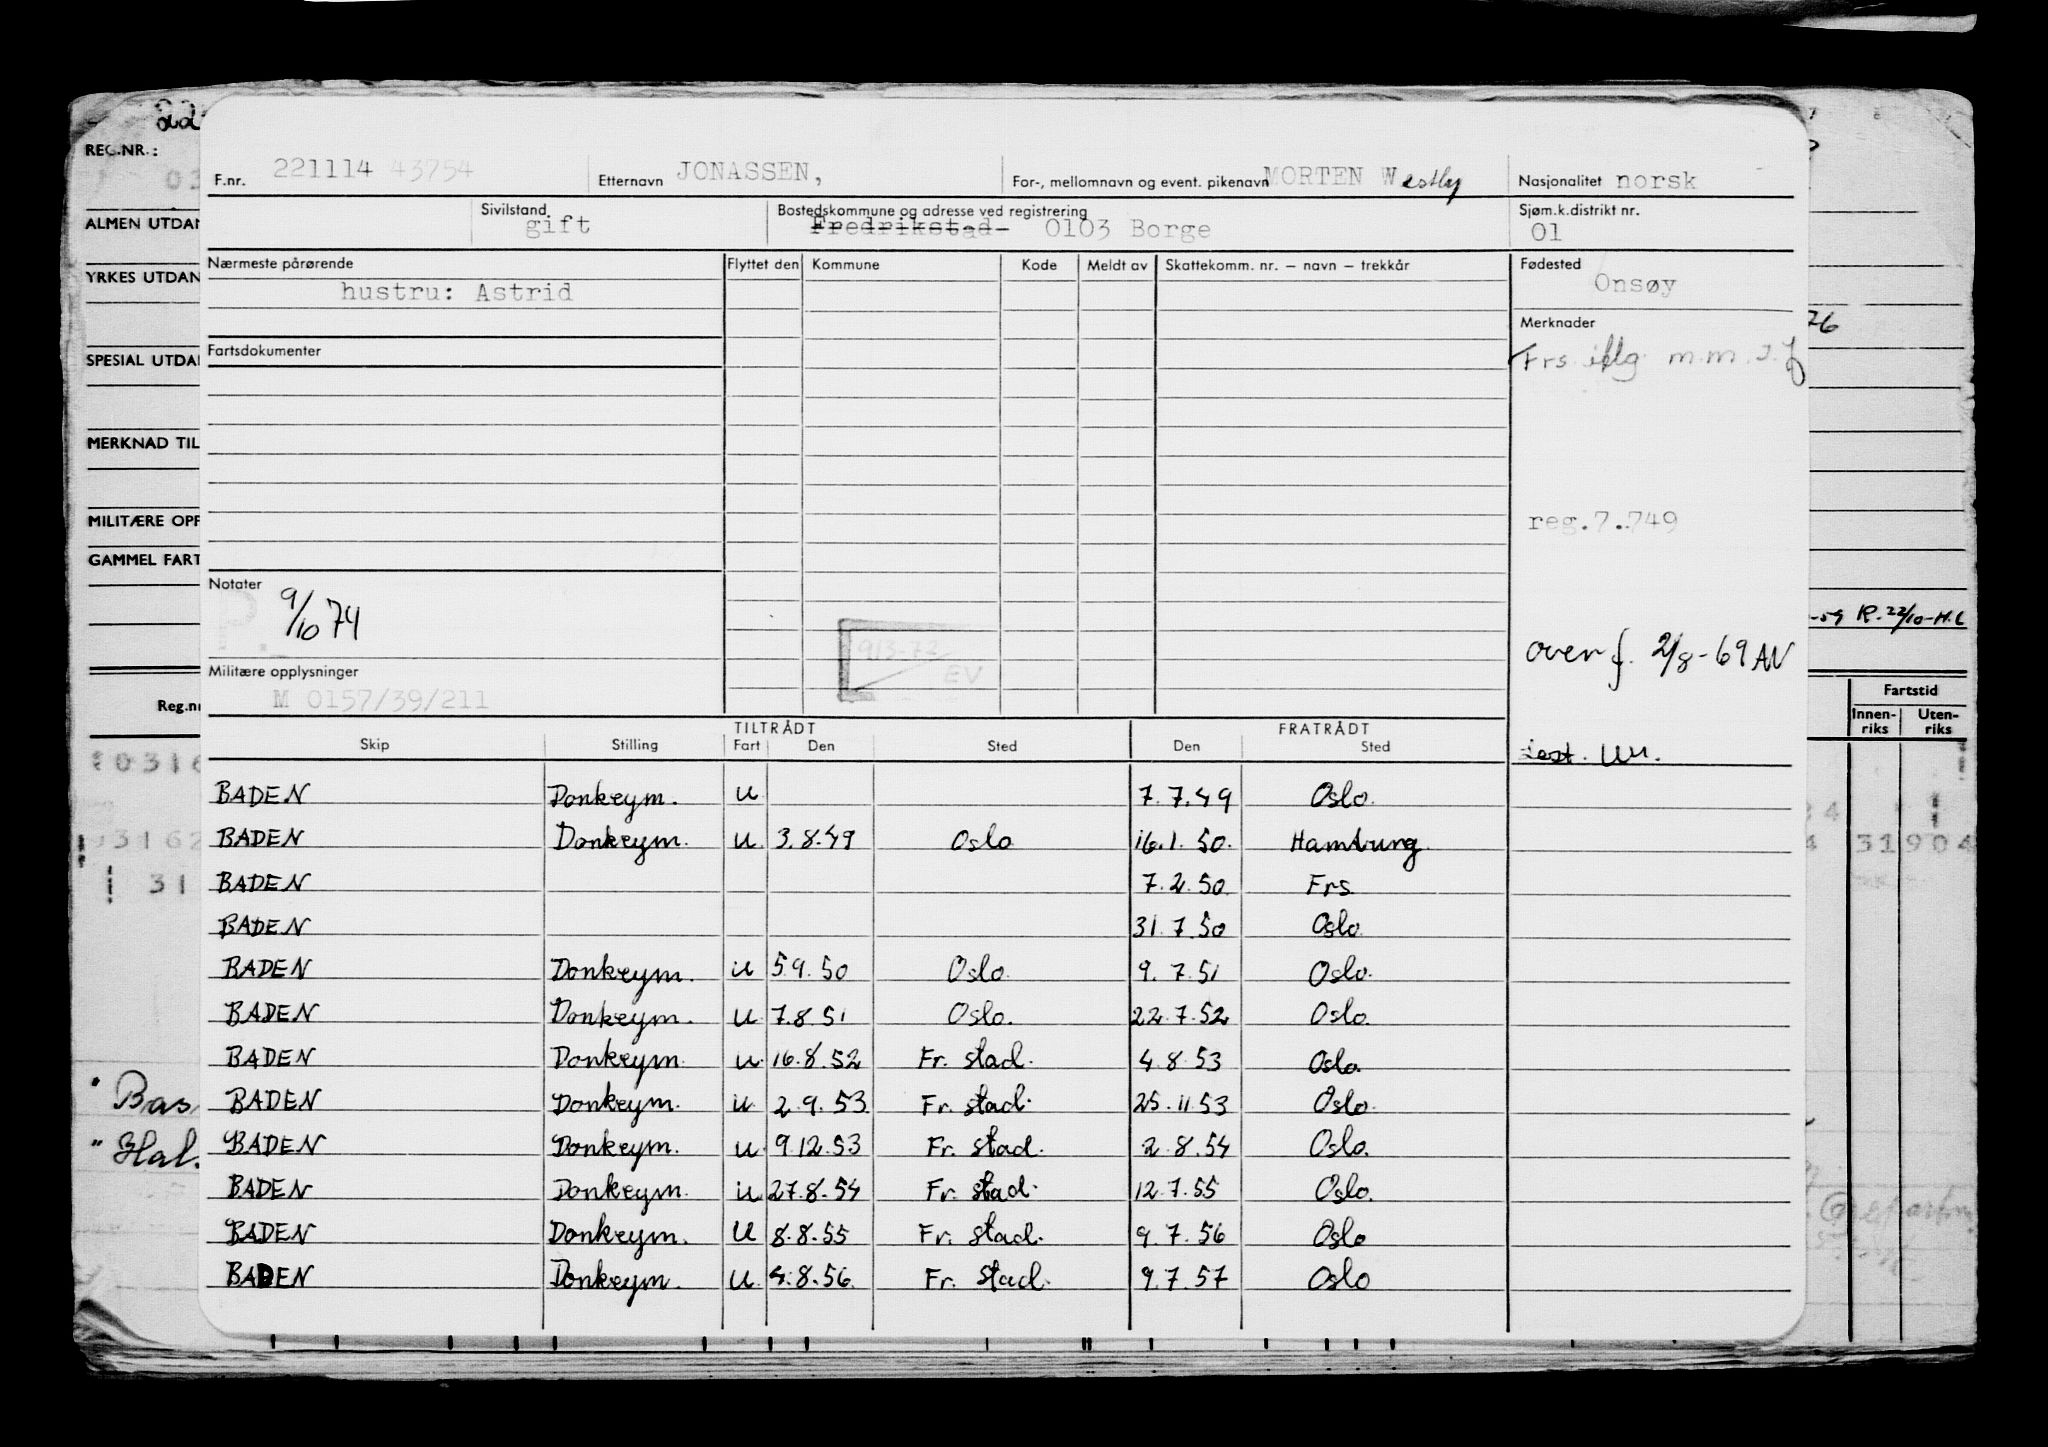 REG.NR.:
F.nr. 221114 43754 Etternavn JONASSEN, For-, mellomnavn og event. pikenavn MORTEN Westly Nasjonalitet norsk
ALMEN UTDAN
Sivilstand gift Bostedskommune og adresse ved registrering Fredrikstad 0103 Borge Sjøm.k.distrikt nr. 01
YRKES UTDAN
Nærmeste pårørende Flyttet den Kommune Kode Meldt av Skattekomm. nr. – navn – trekkår Fødested Onsøy
hustru: Astrid
Merknader
SPESIAL UTDA
Fartsdokumenter
Frs. m.m.
MERKNAD TIL
MILITÆRE OPP
reg.7..749
GAMMEL FART
Notater
9/10 74
-59 R. 22/10-H.L
913-72
EV
overf. 2/8-69 AN
Militære opplysninger
M 0157/39/211
Fartstid
Innen-riks Uten-riks
Reg.nr
TILTRÅDT FRATRÅDT
Skip Stilling Fart Den Sted Den Sted
BADEN Donkeym. U 7.7.49 Oslo.
BADEN Donkeym. U. 3.8.49 Oslo 16.1.50. Hamburg.
31904
BADEN 7.2.50. Frs.
BADEN 31.7.50 Oslo.
BADEN Donkeym. U 5.9.50 Oslo. 9.7.51 Oslo.
BADEN Donkeym. U. 7.8.51 Oslo. 22.7.52 Oslo.
BADEN Donkeym. U. 16.8.52 Fr. stad. 4.8.53 Oslo.
" Bas
BADEN Donkeym. U. 2.9.53 Fr. stad. 25.11.53 Oslo.
" Hal.
BADEN Donkeym. U. 9.12.53 Fr. stad. 2.8.54 Oslo.
BADEN Donkeym. U. 27.8.54 Fr. stad. 12.7.55 Oslo.
BADEN Donkeym. U 8.8.55 Fr. stad. 9.7.56 Oslo
BADEN Donkeym. U. 4.8.56. Fr. stad. 9.7.57 Oslo